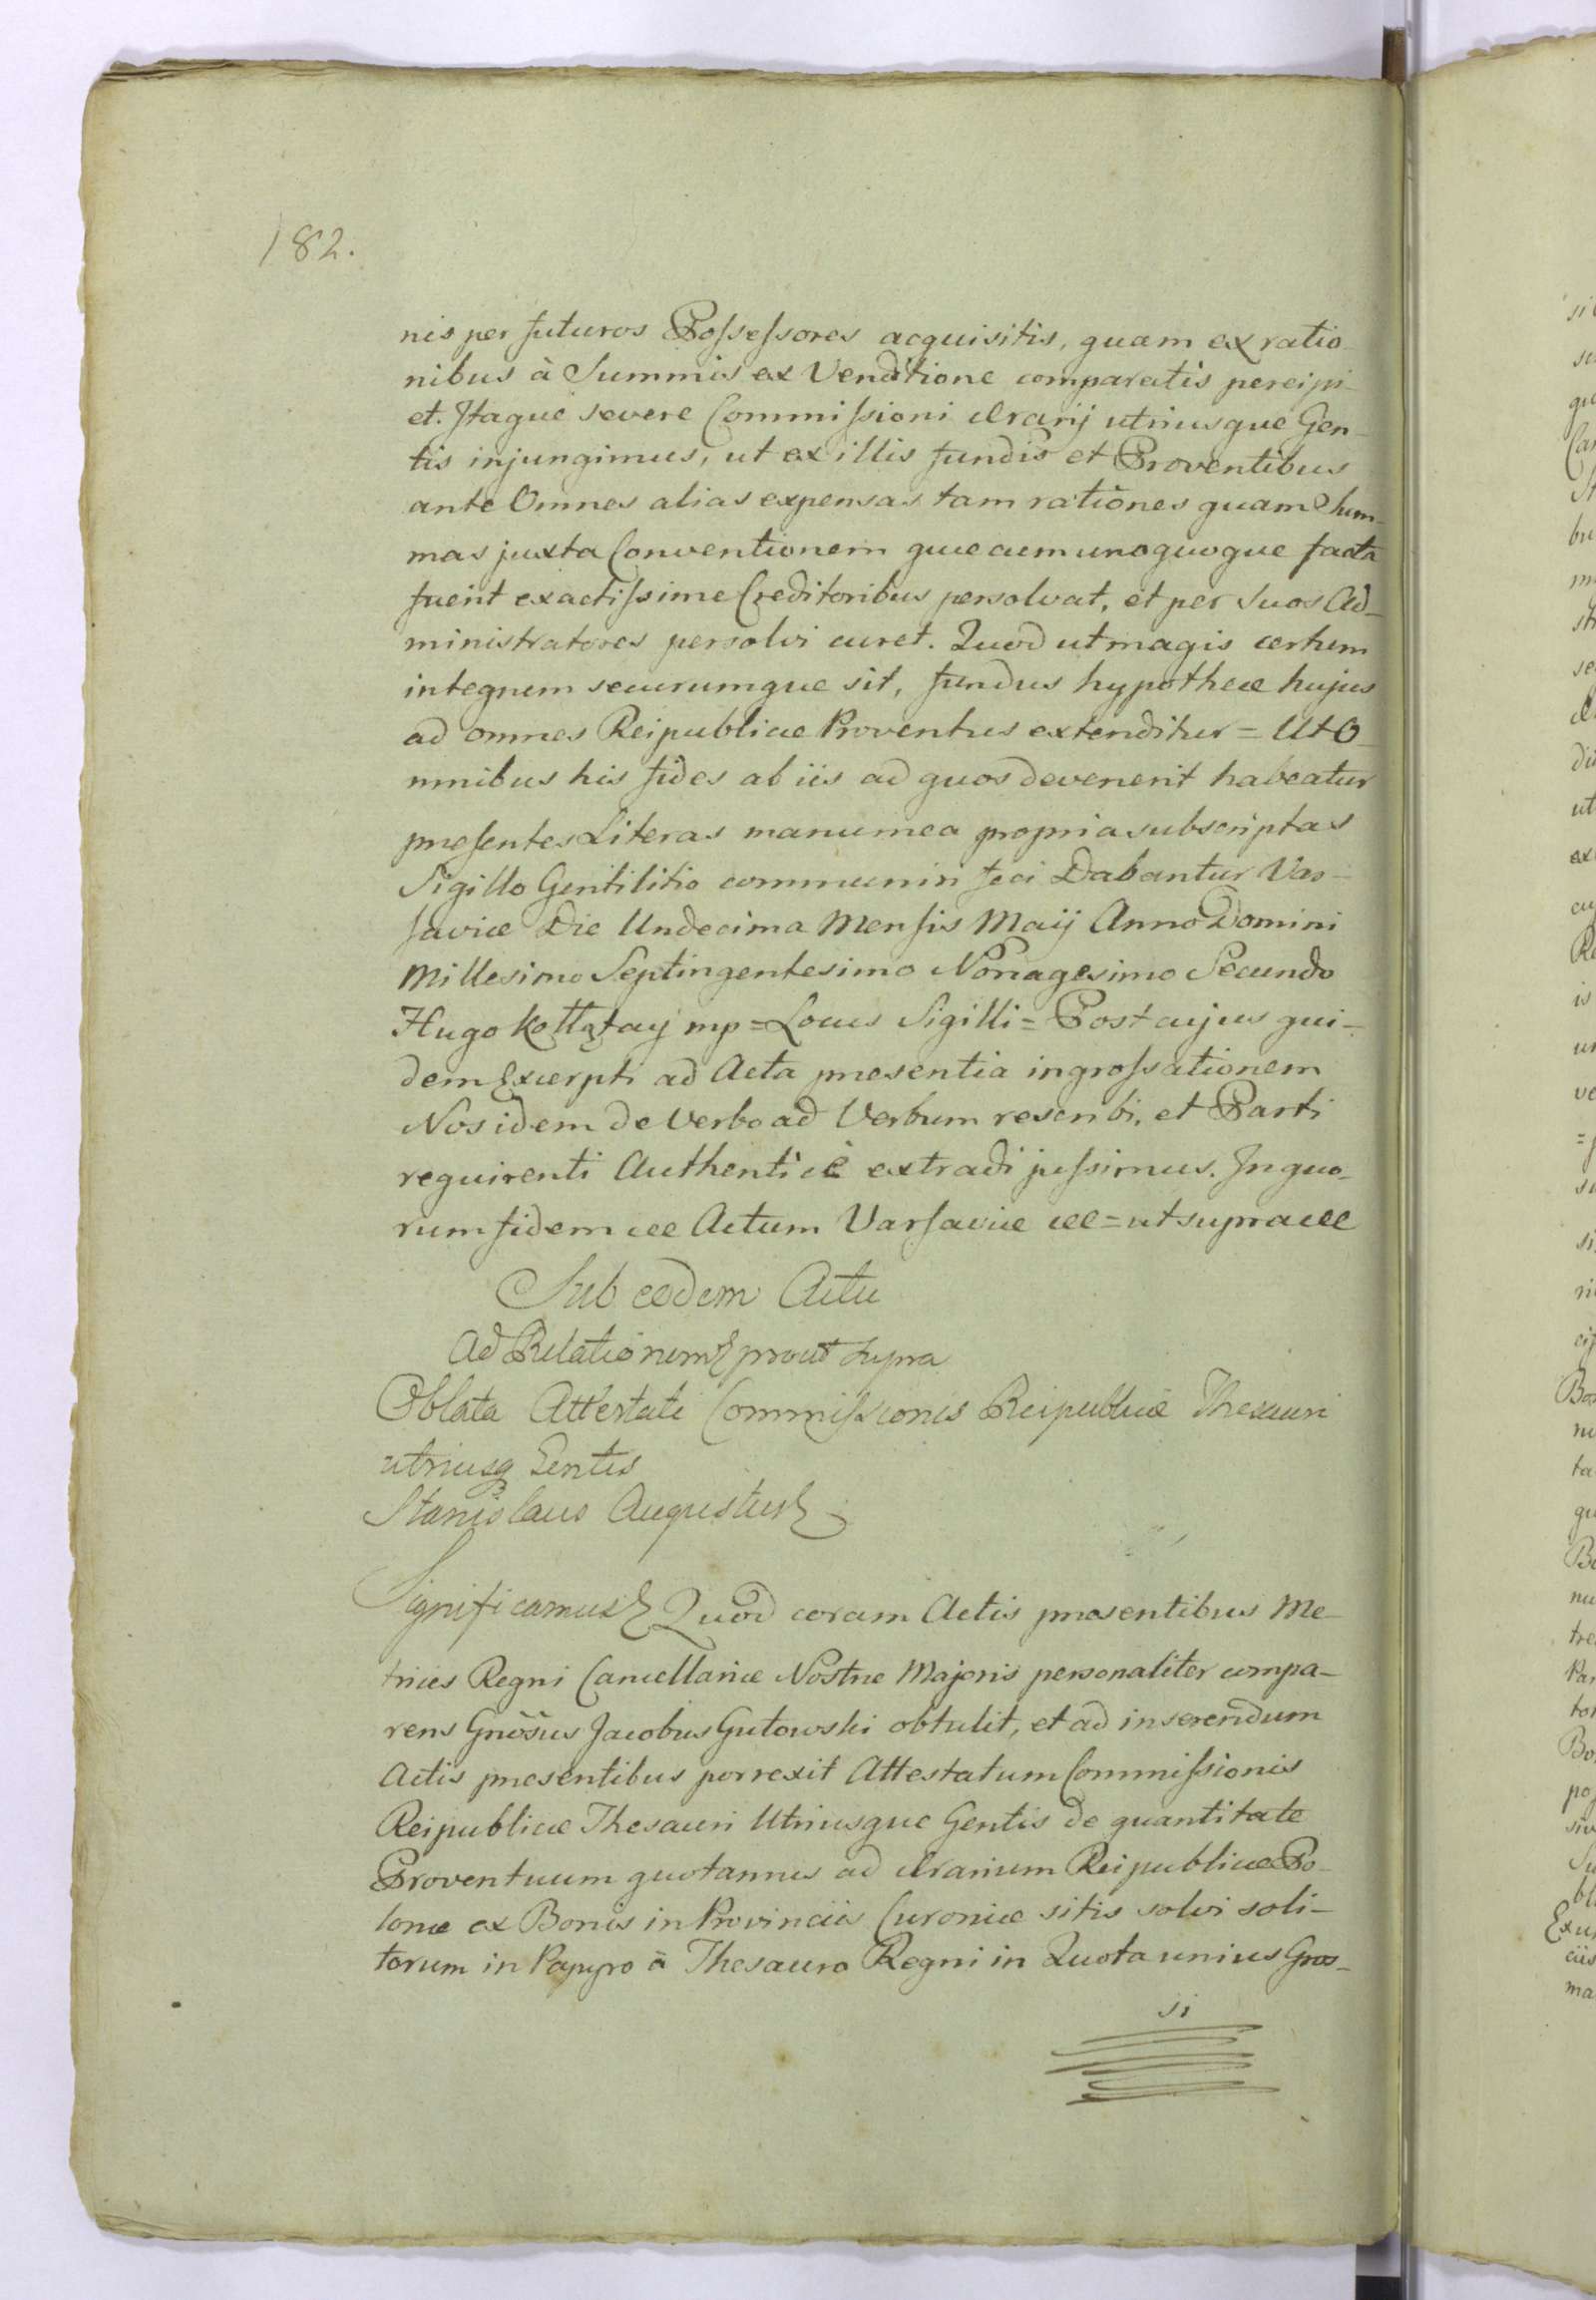 182.
nis per futuros Poſseſsores acquisitis, quam ex ratio
nibus à Summis ex Venditione comparatis percipi-
et. Itaque severe Commiſsioni Ærarij utriusque Gen-
tis injungimus, ut ex illis fundis et Proventibus
ante Omnes alias expensas tam rationes quam Sum-
mas juxta Conventionem quæ cum unoquoque facta
fuerit exactiſsime Creditoribus persolvat, et per suos Ad-
ministratores persolvi curet. Quod ut magis certum
integrum securumque sit, fundus hypothecæ hujus
ad omnes Reipublicæ Proventus extenditur = Ut O-
mnibus his fides ab iis ad quos devenerit habeatur
præſentes Literas manu mea propria subscriptas
Sigillo Gentilitio communiri feci Dabantur Var-
ſaviæ Die Undecima Menſis Maij Anno Domini
Millesimo Septingentesimo Nonagesimo Secundo
Hugo Kołłątaj mp = Locus Sigilli = Post cujus qui-
dem Excerpti ad Acta præsentia ingroſsationem
Nos idem de Verbo ad Verbum rescribi, et Parti
requirenti Authenticè extradi juſsimus. In quo-
rum fidem &c Actum Varſaviæ &c = ut supra &c
Sub eodem Actu
Ad Relationem & prout supra
Oblata Attestati Commiſsionis Reipublicæ Thesauri
utriusq Gentis
Stanislaus Augustus &
Significamus & Quod coram Actis præsentibus Me-
trices Regni Cancellariæ Nostræ Majoris personaliter compa-
rens Gnosus Jacobus Gutowski obtulit, et ad inserendum
Actis præsentibus porrexit Attestatum Commiſsionis
Reipublicæ Thesauri Utriusque Gentis de quantitate
Proventuum quotannis ad Ærarium Reipublicæ Po-
lonæ ex Bonis in Provinciis Curoniæ sitis solvi soli-
torum in Papyro à Thesauro Regni in Quota unius Gros-
si